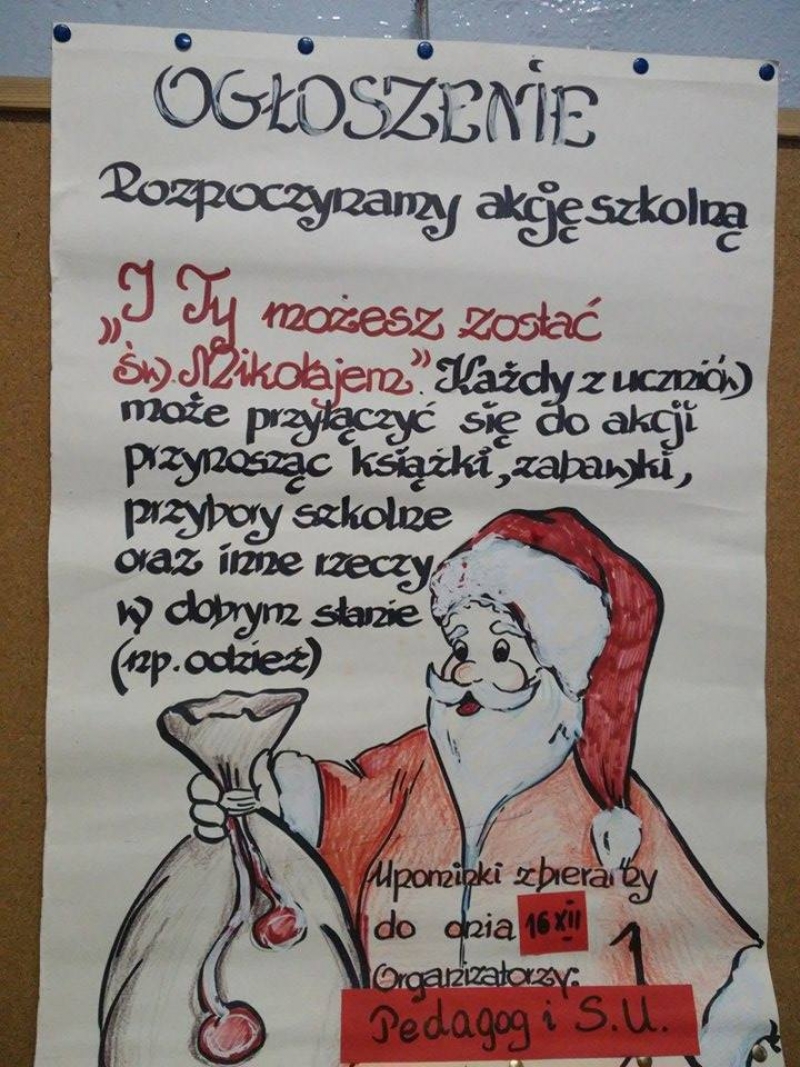 OGŁOSZENIE
Rozpoczynamy akcję szkolną
„I Ty możesz zostać
św. Mikołajem". Każdy z uczniów
może przyłączyć się do akcji
przynosząc książki, zabawki,
przybory szkolne
oraz inne rzeczy
w dobrym stanie
(np. odzież)
Upominki zbieramy
do dnia 16 XII
Organizatorzy:
Pedagog i S.U.